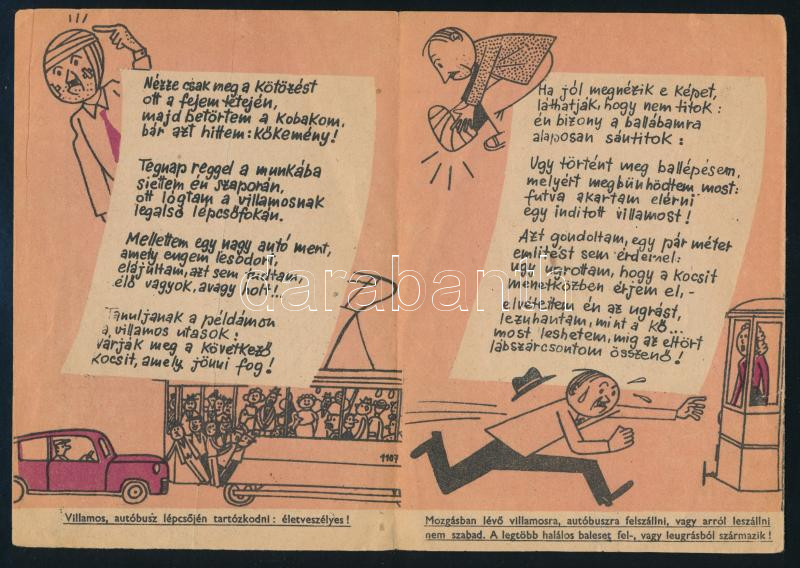 Nézze csak meg a kötözést
ott a fejem tetején,
majd betörtem a kobakom,
bár azt hittem: kőkemény!
Tegnap reggel a munkába
siettem én szaporán,
ott lógtam a villamosnak
legalsó lépcsőfokán.
Mellettem egy nagy autó ment,
amely engem lesodort,
elájultam, azt sem tudtam,
élő vagyok, avagy holt...
Tanuljanak a példámon
a villamos utasok:
várják meg a következő
kocsit, amely jönni fog!
1107
Villamos, autóbusz lépcsőjén tartózkodni: életveszélyes!
Ha jól megnézik e képet,
láthatják, hogy nem titok:
én bizony a ballábamra
alaposan sántitok:
Ugy történt meg ballépésem,
melyért megbünhödtem most:
futva akartam elérni
egy inditott villamost!
Azt gondoltam, egy pár méter
emlitést sem érdemel:
ugy ugrottam, hogy a kocsit
menetközben érjem el,-
elvétettem én az ugrást,
lezuhantam, mint a kő...
most leshetem, mig az eltört
lábszárcsontom összenő!
Mozgásban lévő villamosra, autóbuszra felszállni, vagy arról leszállni
nem szabad. A legtöbb halálos baleset fel-, vagy leugrásból származik!
darabanth